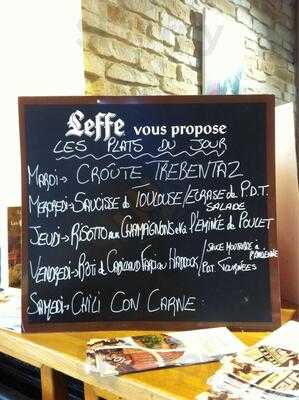 Leffe vous propose
LES PLATS DU JOUR
MARDI → CROÛTE TREBENTAZ
MERCREDI → SAUCISSE de TOULOUSE / ECRASÉ de P.D.T.
SALADE
JEUDI → RISOTTO aux CHAMPIGNONS et L'EMINCÉ de POULET
VENDREDI → ROTI de HADDOCK / SAUCE MOUTARDE à
L'ANCIENNE
POT. TOURNÉES
SAMEDI → CHILI CON CARNE